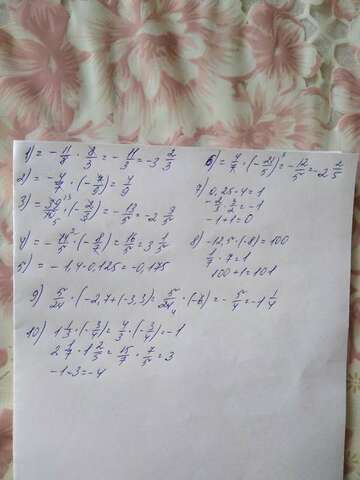 1) = - 11/8 · 8/3 = - 11/3 = -3 2/3
2) = - 4/7 · (- 7/9) = 4/9
3) = 39/10 · (- 2/3) = - 13/5 = -2 3/5
5) = - 1,4 · 0,125 = -0,175
6) = 4/7 · (- 21/5) = - 12/5 = -2 2/5
7) 0,25 · 4 = 1
- 2/3 · 3/2 = -1
-1+1=0
8) -12,5 · (-8) = 100
1/7 · 7 = 1
100+1=101
9) 5/24 · (-2,7+(-3,3) = 5/24 · (-6) = - 5/4 = -1 1/4
10) 1 1/3 · (- 3/4) = 4/3 · (- 3/4) = -1
2 1/7 · 1 2/5 = 15/7 · 7/5 = 3
-1-3=-4